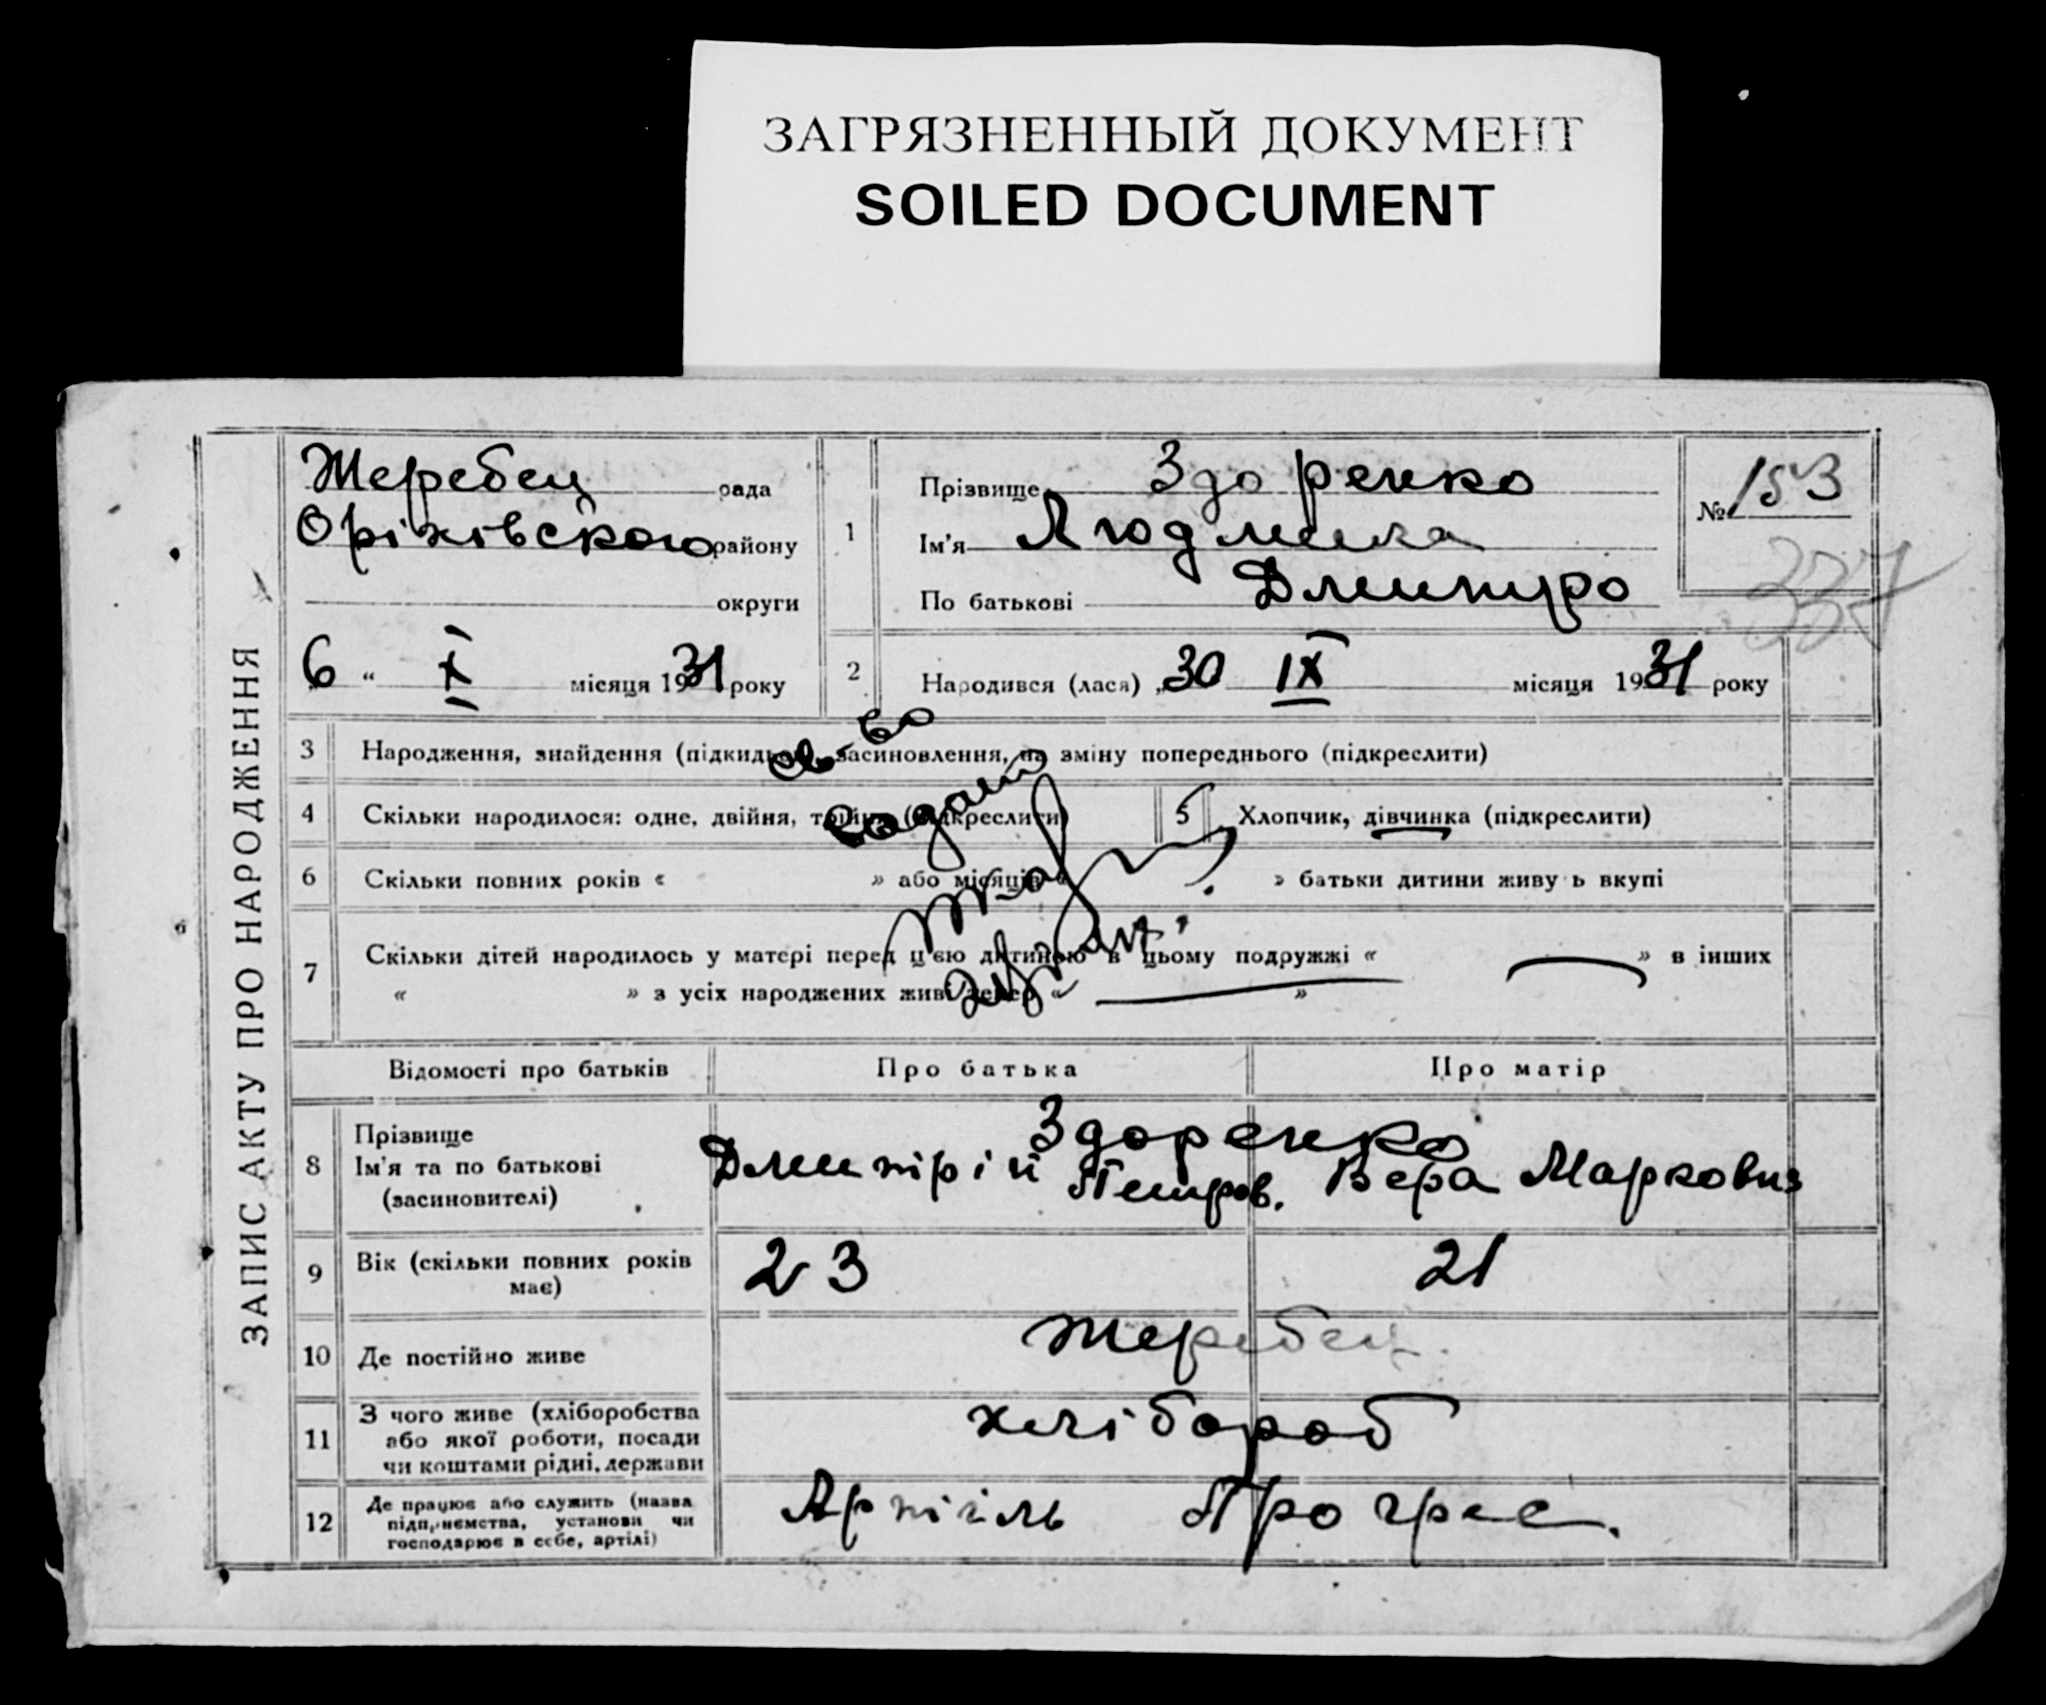 ЗАГРЯЗНЕННЫЙ ДОКУМЕНТ
SOILED DOCUMENT
ЗАПИС АКТУ ПРО НАРОДЖЕННЯ
Жеребец рада
Оріхівского району
округи
6 " X місяця 1931 року
1
Прізвище Здоренко
Ім'я Людмила
По батькові Дмитро
№ 153
337
2 Народився (лася) „30 IX місяця 1931 року
3 Народження, знайдення (підкидьок), засиновлення, на зміну попереднього (підкреслити)
4 Скільки народилося: одне, двійня, трійня (підкреслити)
5 Хлопчик, дівчинка (підкреслити)
6 Скільки повних років « » або місяців « » батьки дитини живуть вкупі
7 Скільки дітей народилось у матері перед цією дитиною в цьому подружжі « » в інших
« » з усіх народжених живі тепер « »
Відомості про батьків Про батька Про матір
8 Прізвище
Ім'я та по батькові
(засиновителі)
Здоренко
Дмитрій Петров. Вера Марковна
9 Вік (скільки повних років
має)
23 21
10 Де постійно живе Жеребец.
11 З чого живе (хліборобства
або якої роботи, посади
чи коштами рідні, держави
хлібороб
12 Де працює або служить (назва
підприємства, установи чи
господарює в себе, артілі)
Артіль Прогрес.